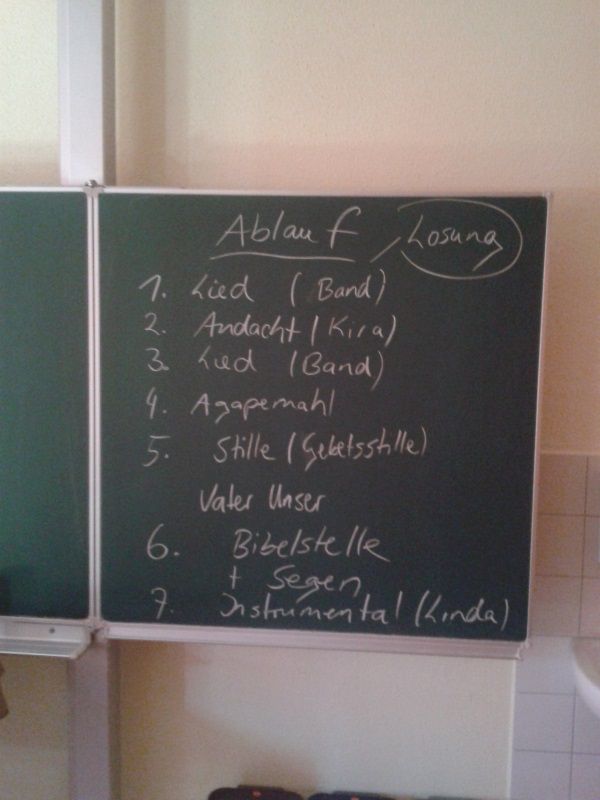 Ablauf
Losung
1. Lied (Band)
2. Andacht (Kira)
3. Lied (Band)
4. Agapemahl
5. Stille (Gebetsstille)
Vater Unser
6. Bibelstelle
+ Segen
7. Instrumental (Linda)